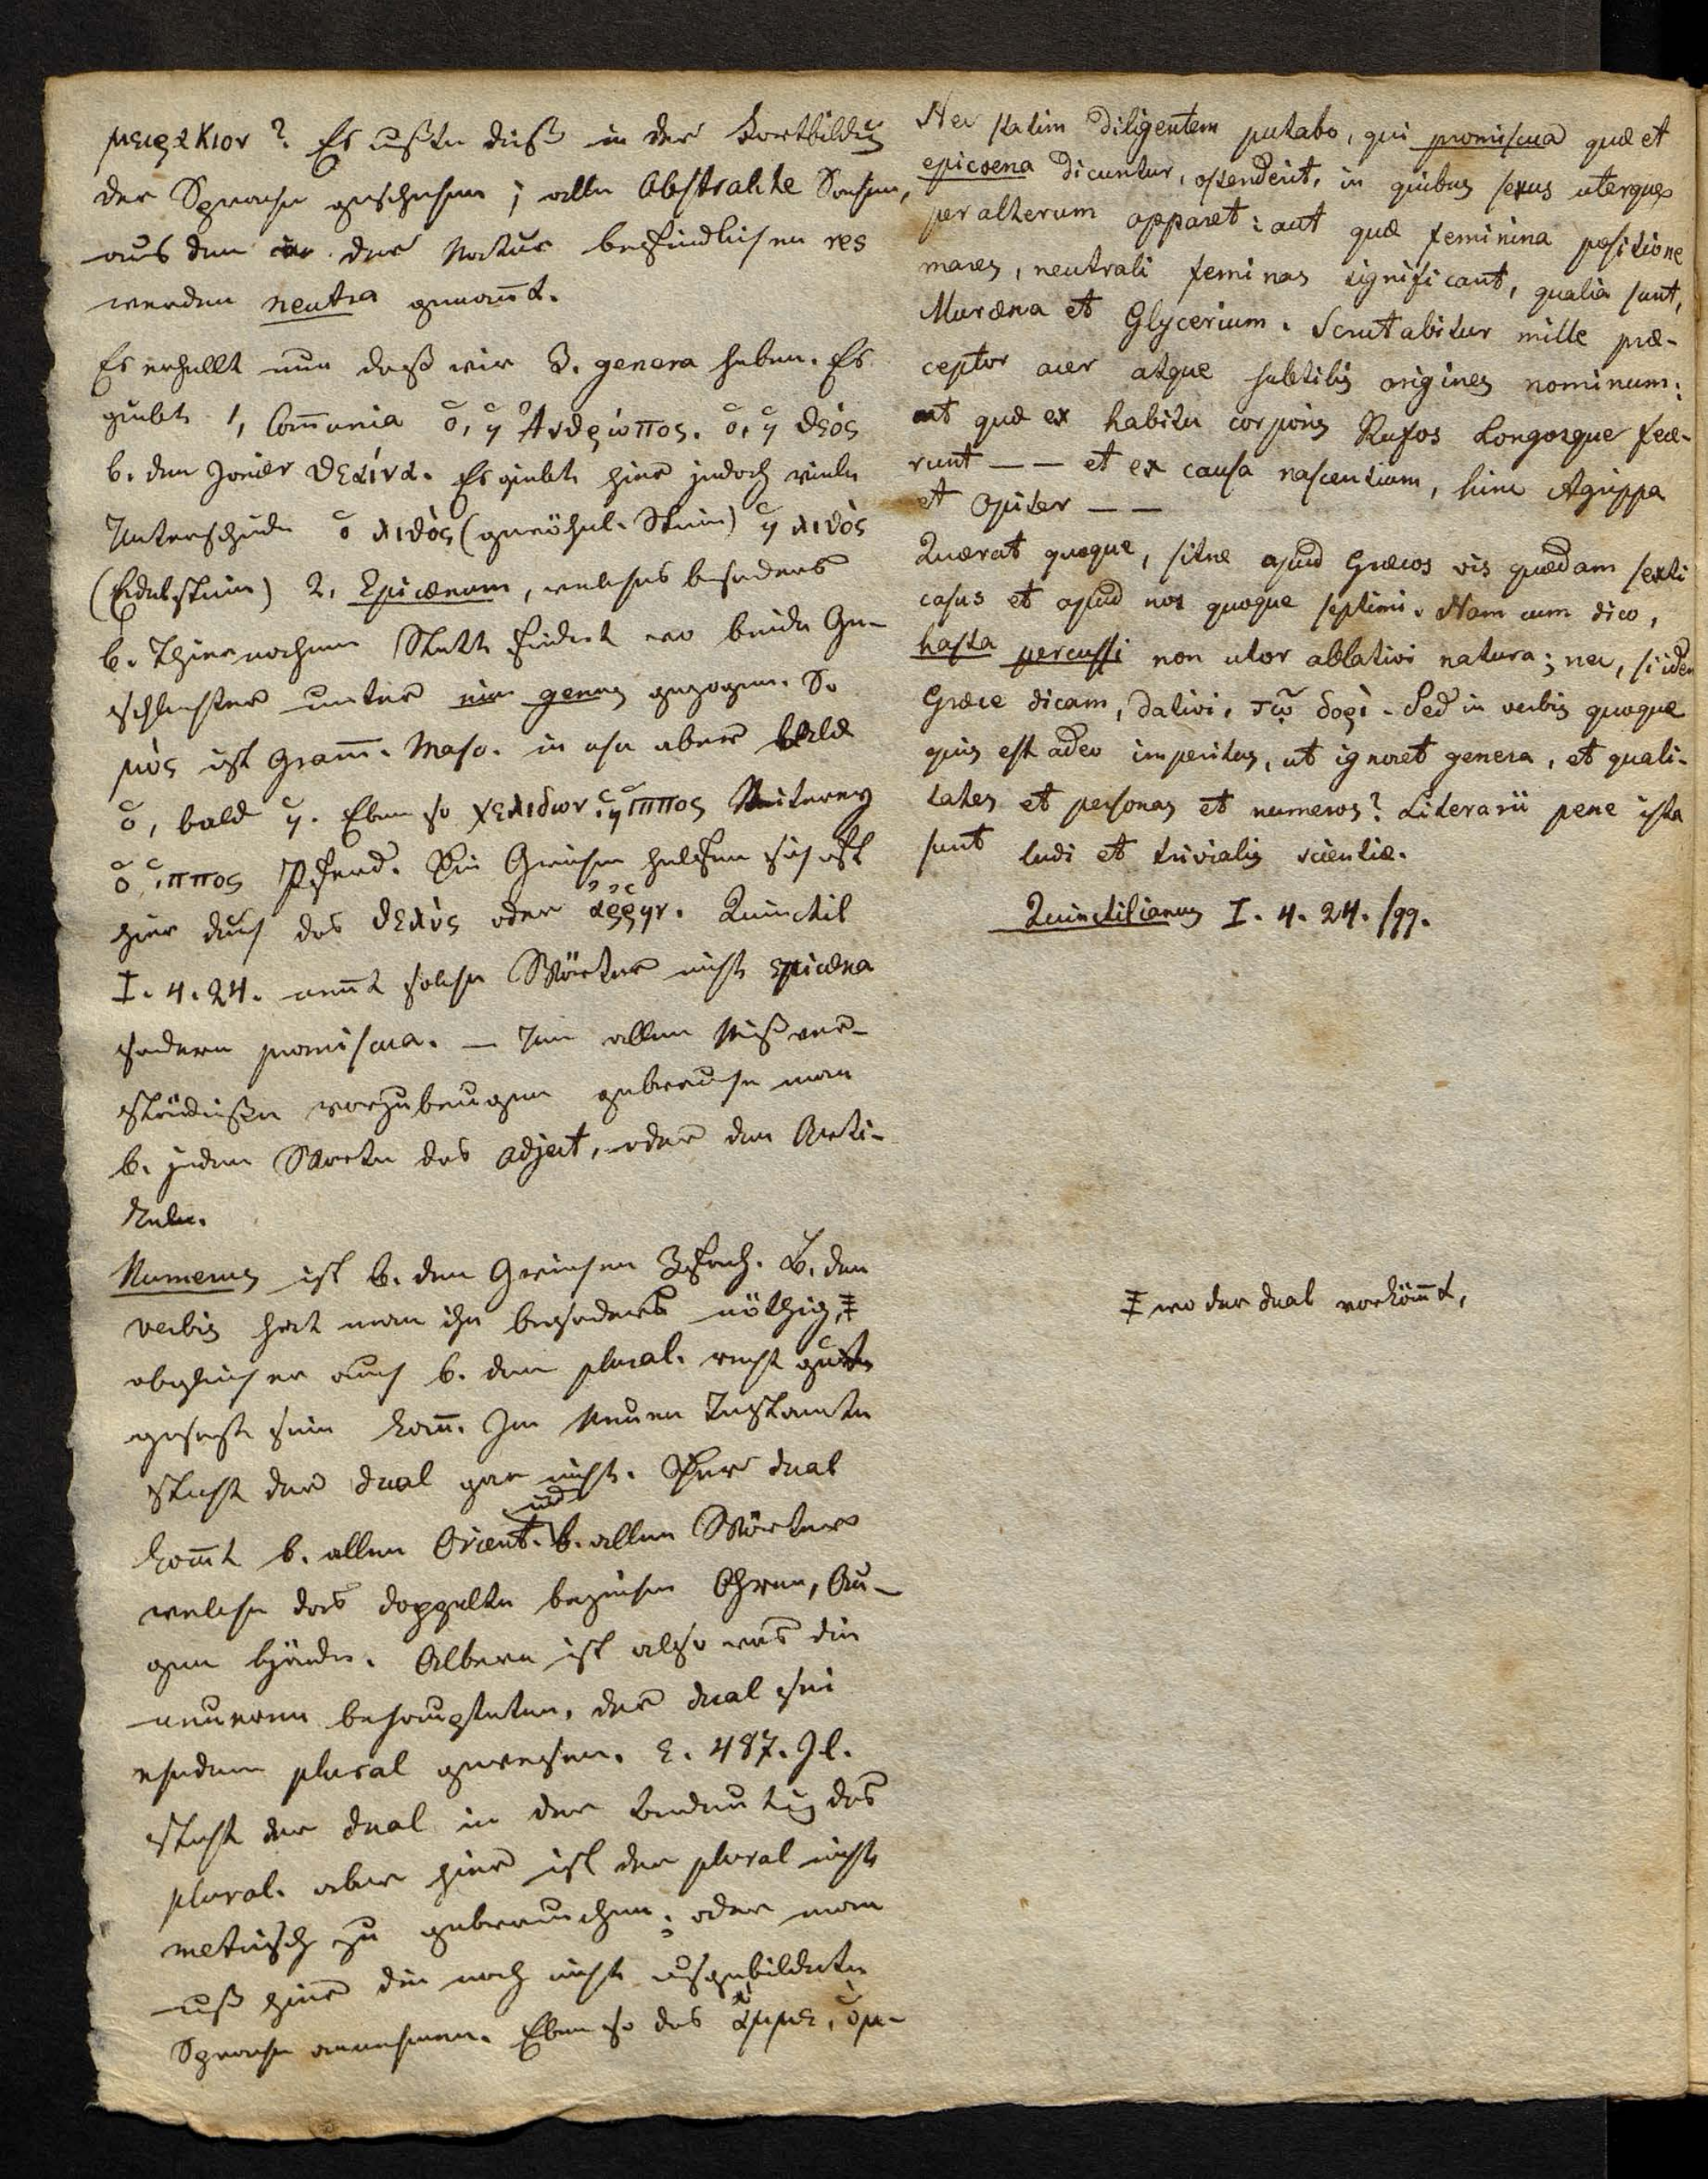 μειρακιον? Es mußte dieß in der Fortbildūg
der Sprache geschehen; alle Abstrakte Sachen,
aus den in der Natur befindlichen res
werden neutra genan̄t.
Es erhellt nun daß wir 3. genera haben. Es
giebt 1, Com̄unia ὁ, ἡ ἀνθρώπος. ὁ, ἡ θεὸς
b. den Jonier θεαίνα. Es giebt hier jedoch viele
Unterschiede ὁ λιθὸς (gewöhnl. Stein) ἡ λιθὸς
(Edelstein) 2, Epicænum, welches besonders
b. Thiernahmen Statt findet wo beide Ge-
schlechter unter ein genus gezogen. So
μὺς ist Gram̄. Masc. in usu aber bald
ὁ, bald ἡ. Eben so χελιδων. ἡ ἱππος Reiterey
ὁ ἱππος Pferd. Die Griechen helfen sich oft
hier durch das θελὺς oder ἄρρην. Quinctil
I. 4. 24. nen̄t solche Wörter nicht epicæna
sondern promiscua. — Um allen Mißver-
ständnißen vorzubeugen gebrauche man
b. jedem Worte das Adject, oder den Arti-
kel.
Numerus ist b. den Griechen 3fach. B. den
verbis hat man ihn besonders nöthig,
obgleich er auch b. dem plural. recht gut
gesetzt sein kan̄. Im Neuen Testamte
steht der dual gar nicht. Der dual
kom̄t b. allen Orient. und b. allen Wörter
welche das doppelte bezeichnen Ohren, Au-
gen Hände. Albern ist also was die
neueren behaupteten, der dual sei
ehedem plural gewesen. ε. 487. Il.
steht der dual in der Bedeutūg des
plural. aber hier ist der plural nicht
metrisch zu gebrauchen; oder man
muß hier die noch nicht ausgebildete
Sprache annehmen. Eben so das ἄμμε, ὔμ-
Nec statim diligentem putabo, qui promiscua quæ et
epicoena dicuntur, ostenderit, in quibus sexus uterque
per alterum apparet: aut quæ feminina positione
mares, neutrali feminas significant, qualia sunt,
Muræna et Glycerium. Scrutabitur mille præ-
ceptor acer atque subtilis origines nominum:
aut quæ ex habitu corporis Rufos Longosque fece-
runt — — et ex causa nascentium, hinc Agrippa
et Opiter — —
Quærat quoque, sitne apud Græcos vis quædam sexti
casus et apud nos quoque septimi. Nam cum dico,
hasta percussi non utor ablativi natura; nec, si idem
Græce dicam, dativi, τῷ δορὶ. Sed in verbis quoque
quis est adeo imperitus, ut ignoret genera, et quali-
tates et personas et numeros? Literarii pene ista
sunt ludi et trivialis scientiæ.
Quinctilianus I. 4. 24. sqq.
wo der dual vorköm̄t,